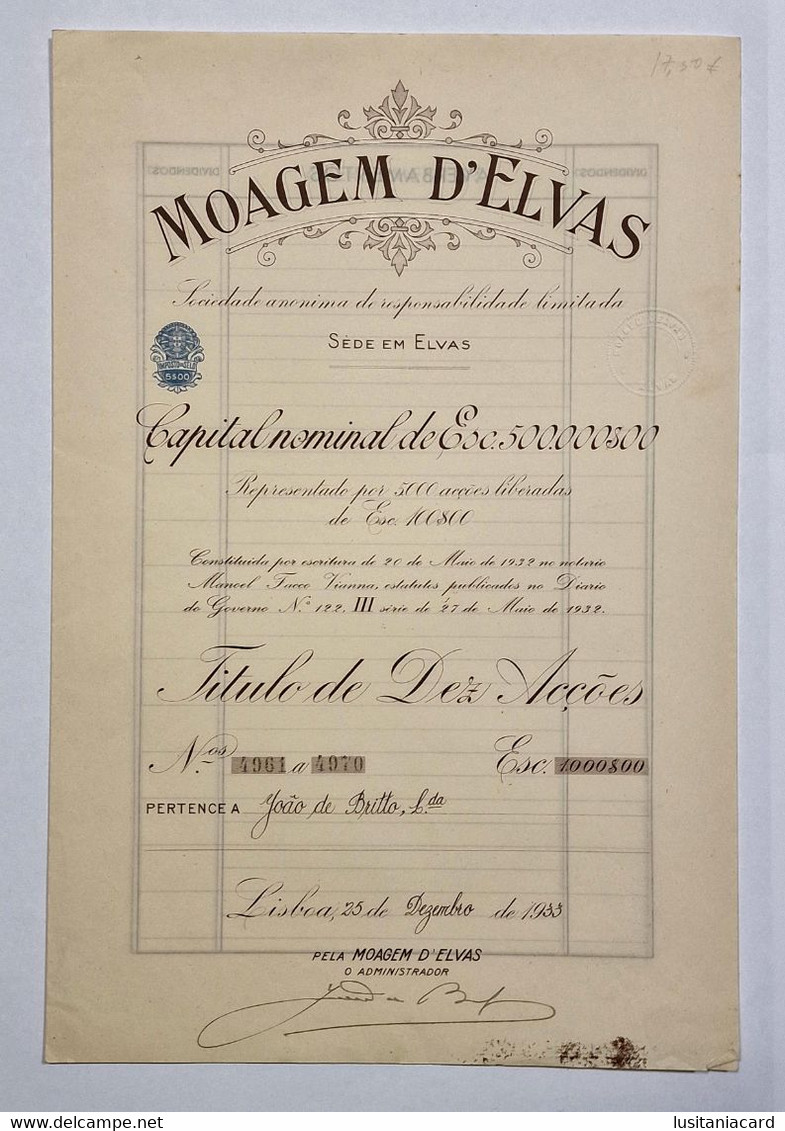 17,50 €
MOAGEM D'ELVAS
Sociedade anonima de responsabilidade limitada
SÈDE EM ELVAS
IMPOSTO DO SELO
5$00
Capital nominal de Esc. 500.000$00
Representado por 5000 acções liberadas
de Esc. 100$00
Constituida por escritura de 20 de Maio de 1932 no notario
Manoel Facco Vianna, estatutos publicados no Diario
do Governo N.º 122, III série de 27 de Maio de 1932.
Titulo de Dez Acções
N.os 4961 a 4970 Esc. 1.000$00
PERTENCE A João de Britto, L.da
Lisboa, 25 de Dezembro de 1933
PELA MOAGEM D'ELVAS
O ADMINISTRADOR
delcampe.net
lusitaniacard